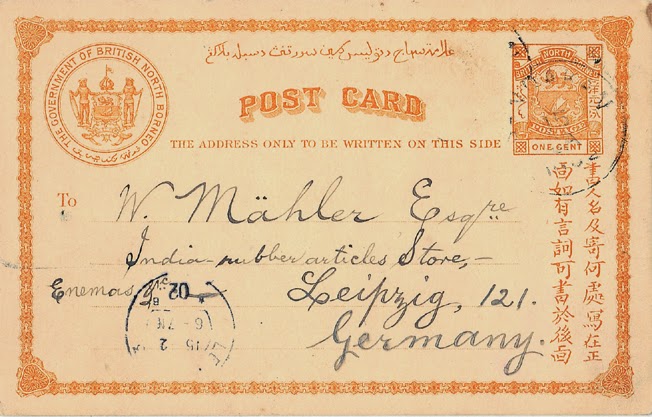 THE GOVERNMENT OF BRITISH NORTH BORNEO
POST CARD
THE ADDRESS ONLY TO BE WRITTEN ON THIS SIDE
BRITISH NORTH BORNEO
POSTAGE
ONE CENT
To
W. Mähler Esqre
India-rubber articles Store,-
Enemas
Leipzig, 121.
Germany.
02
書人名及寄何處寫在正
面如有言詞可書於後面